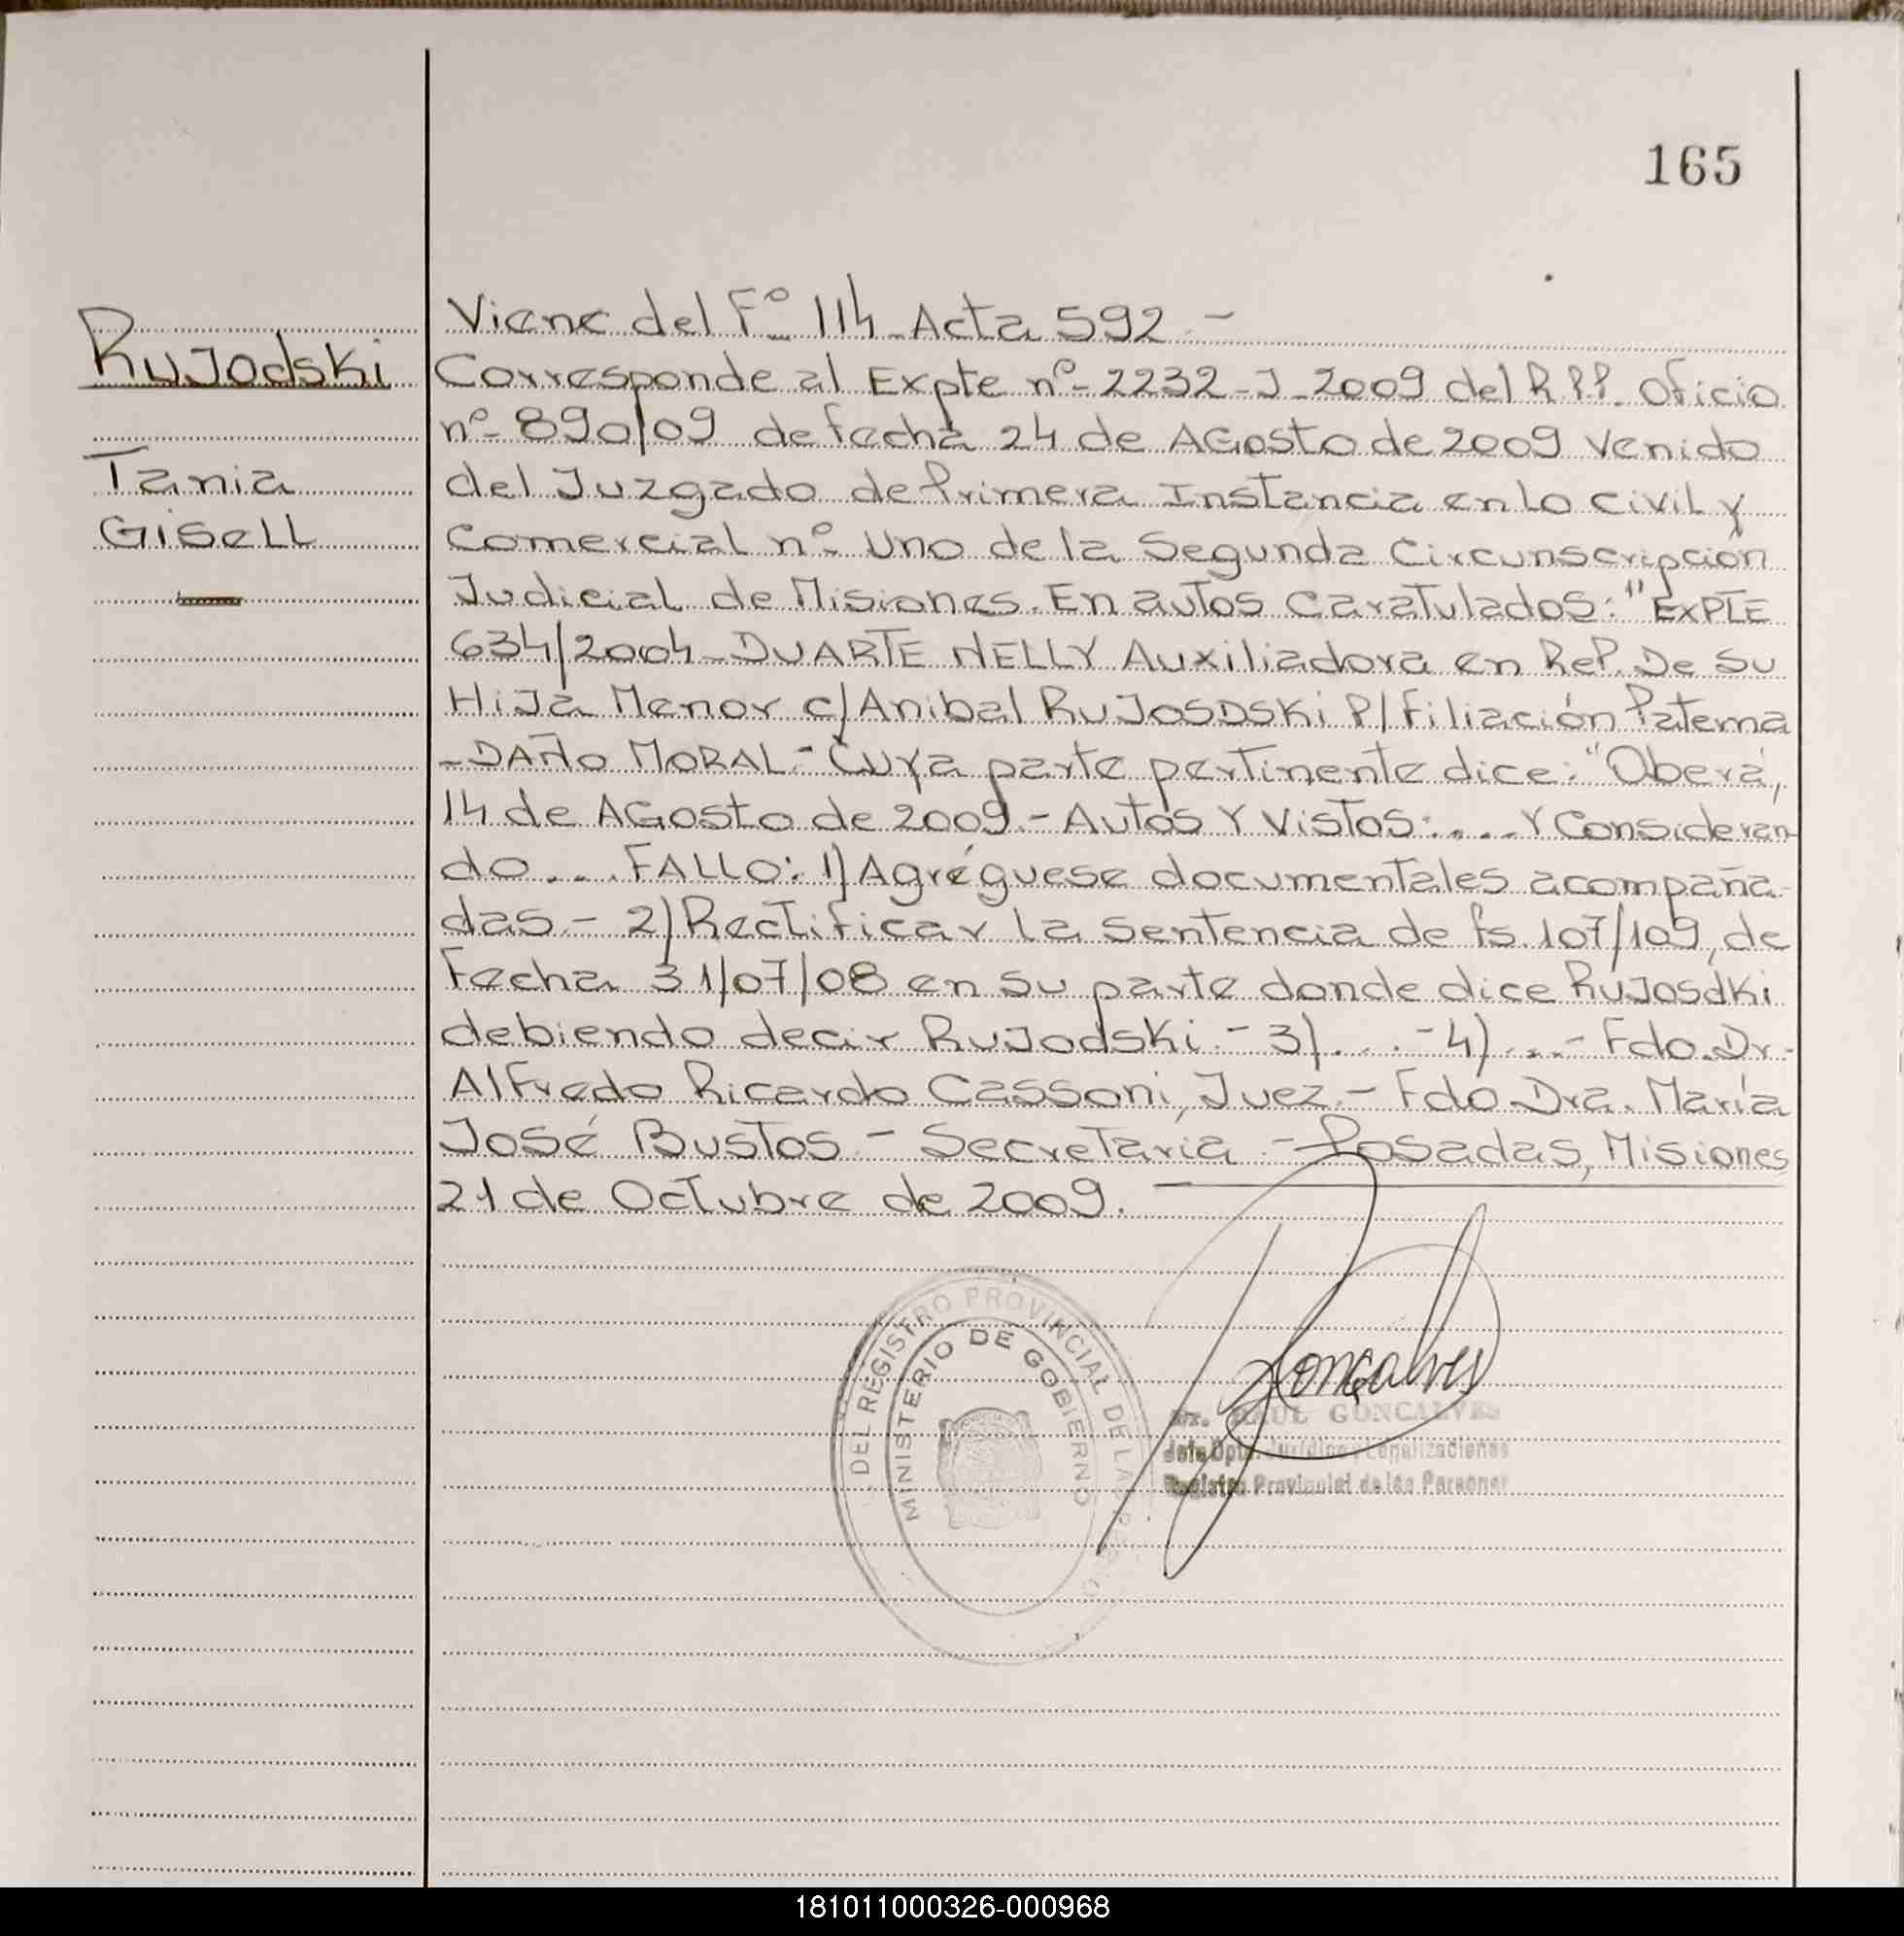 165
Rujodski
Tania
Gisell
Viene del Fº 114 - Acta 592.-
Corresponde al Expte nº 2232-J-2009 del R.P.P. Oficio
nº 890/09 de fecha 24 de Agosto de 2009 venido
del Juzgado de Primera Instancia en lo Civil y
Comercial nº Uno de la Segunda Circunscripción
Judicial de Misiones. En autos caratulados: "EXPTE
634/2004 - DUARTE NELLY Auxiliadora en Rep. De Su
Hija Menor c/ Anibal RuJosDski P/ Filiación Paterna
- DAÑO MORAL.- Cuya parte pertinente dice: "Oberá,
14 de Agosto de 2009.- Autos Y Vistos: .... Y Consideran-
do .... FALLO: 1) Agréguese documentales acompaña-
das.- 2) Rectificar la sentencia de fs. 107/109, de
Fecha 31/07/08 en su parte donde dice Rujosdki
debiendo decir Rujodski.- 3) ... .- 4) ....- Fdo. Dr.
Alfredo Ricardo Cassoni, Juez.- Fdo Dra. María
José Bustos.- Secretaria.- Posadas, Misiones
21 de Octubre de 2009.
DEL REGISTRO PROVINCIAL DE LAS
MINISTERIO DE GOBIERNO
Goncalves
RAUL GONCALVES
Jefe Dpto. Jurídico y Legalizaciones
Registro Provincial de las Personas
181011000326-000968